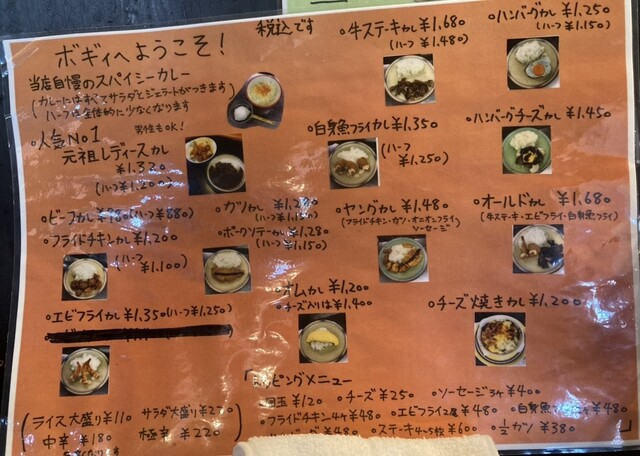 ボギィへようこそ!
税込です
当店自慢のスパイシーカレー
(カレーにはすべてサラダとジェラートがつきます)
ハーフは全体的に少なくなります
。人気No1
男性もOK!
元祖レディースカレ
¥1.320
(ハーフ¥1.200)
。牛ステーキカレ¥1,680
(ハーフ¥1.480)
。ハンバーグカレ¥1,250
(ハーフ¥1.150)
。白身魚フライカレ¥1.350
(ハーフ
¥1,250)
。ハンバーグチーズカレ¥1.450
。ビーフカレ¥980(ハーフ¥880)
。フライドチキンカレ¥1,200
(ハーフ
¥1.100)
。カツカレ¥1,280
(ハーフ¥1.150)
。ポークソテーカレ¥1.280
(ハーフ¥1.150)
。ヤングカレ¥1,480
(フライドチキン・カツ・オニオンフライ
ソーセージ)
。オールドカレ ¥1.680
(牛ステーキ・エビフライ・白身魚フライ)
。エビフライカレ¥1,350(ハーフ¥1,250)
オムカレ¥1,200
チーズ入りは¥1,400
。チーズ焼きカレ¥1,200
ピングメニュー
玉 ¥120
。チーズ¥250
。ソーセージ3ケ¥400
。フライドチキン4ケ¥480
。エビフライ2尾¥480
。ステーキ4〜5枚¥600
。½カツ¥380
ライス大盛り¥110
サラダ大盛り¥220
中辛 ¥180
極辛 ¥220